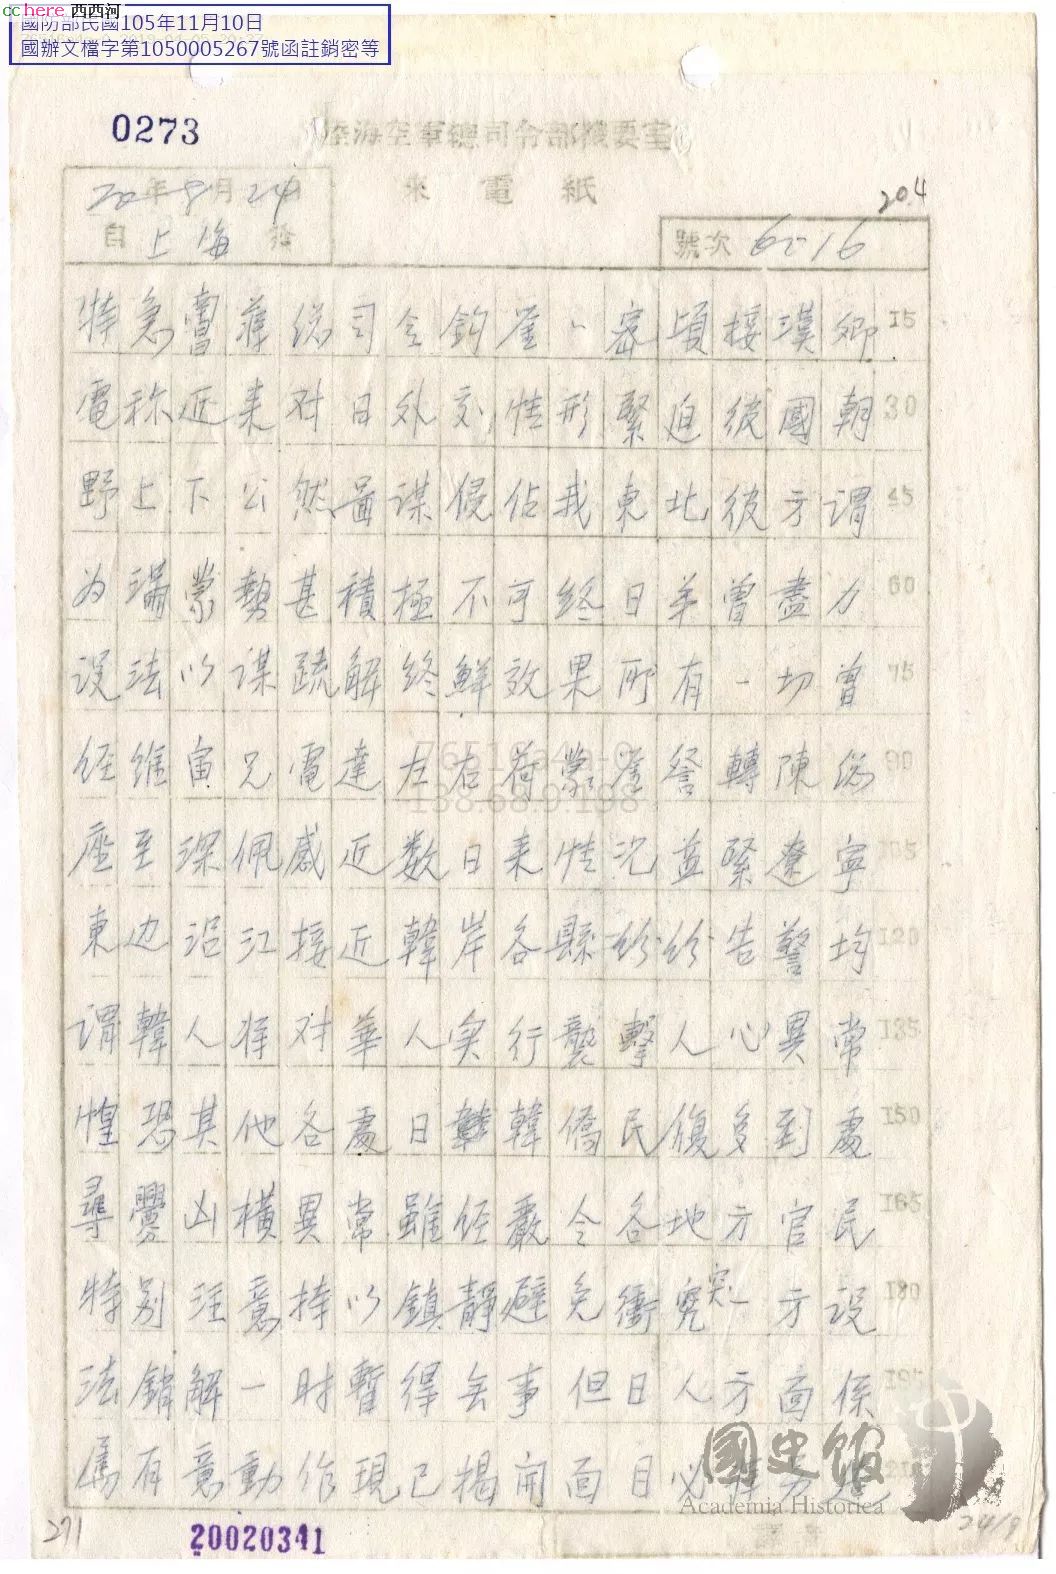 cchere 西西河
國防部民國105年11月10日
國辦文檔字第1050005267號函註銷密等
0273
陸海空軍總司令部機要室
20年8月24日
來電紙
204
自上海發
號次 6216
特急南葬総司令鈞鉴、密頃接漢卿 15
電称近来对日外交情形緊迫彼國朝 30
野上下公然啚谋侵佔我東北彼方谓 45
为满蒙勢甚積極不可终日弟曾盡力 60
设法以谋疏解终鮮效果所有一切曾 75
经維宙兄電達左右荷蒙鉴詧轉陳総 90
座至深佩感近数日来情况益緊遼宁 105
東边沿江接近韓岸各縣纷纷告警均 120
谓韓人将对華人实行襲擊人心異常 135
惶恐其他各處日韓僑民復多到處 150
尋釁凶横異常雖经嚴令各地方官民 165
特别注意持以鎮靜避免衝突一方设 180
法銷解一时暫得无事但日人方面係 195
属有意動作現已揭開面目必
國史館
Academia Historica
271
20020341
24/9
76510a4a-0
138.68.9.198